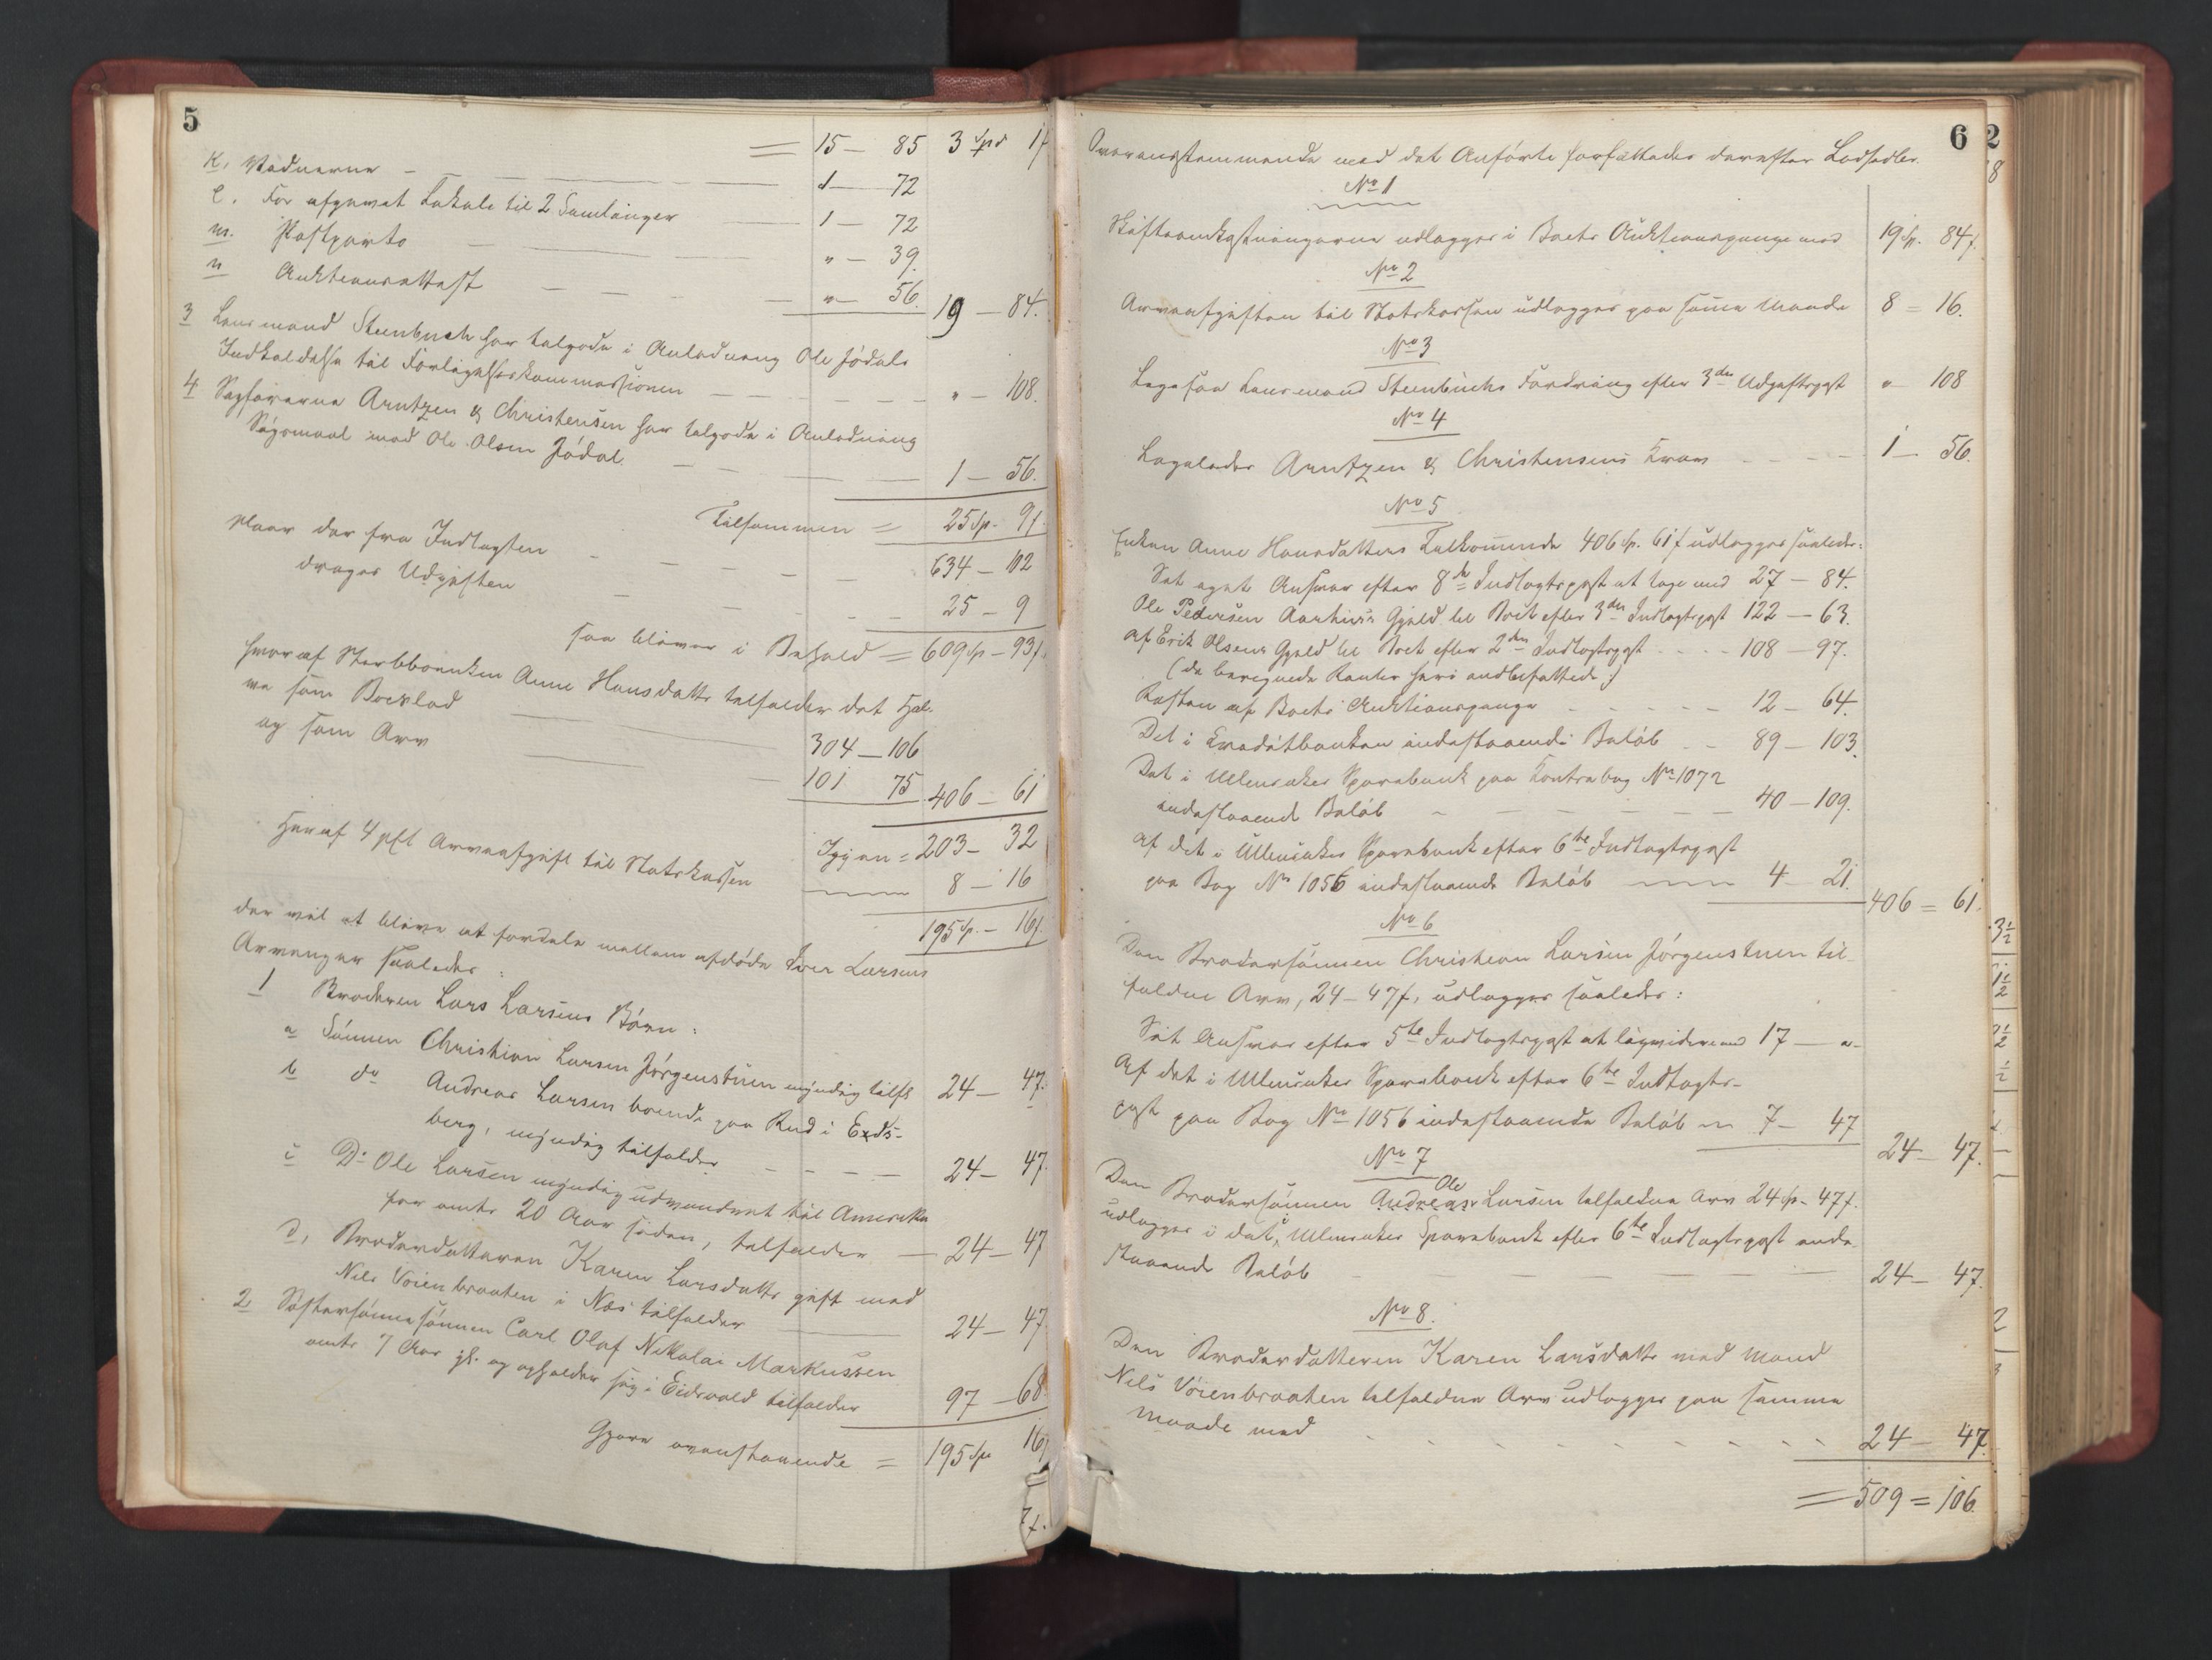 5
= 15 — 85 3 Spd 1f
k. Vidnerne — 1 — 72
l. For afgivet Lokale til 2 Samlinger 1 — 72
m. Postporto — " — 39.
n Auktionsattest — " — 56. 19 — 84.
3 Lensmand Steenbuch har tilgode i Anledning Ole Jødals
Indkaldelse til Forligelseskommissionen — " — 108.
4 Sagførerne Arntzen & Christensen har tilgode i Anledning
Søgsmaal mod Ole Olsen Jødal. — 1 — 56.
Tilsammen = 25 Sp. 9f.
Naar der fra Indtægten — 634 — 102
drages Udgiften — 25 — 9
saa bliver i Behold = 609 Sp — 93f.
hvoraf Sterbboenken Anne Hansdatter tilfalder det Hal-
ve som Boeslod — 304 — 106
og som Arv — 101 75 406 — 61
Igjen = 203 — 32
Heraf 4 pCt Arveafgift til Statskassen — 8 — 16
195 Sp. — 16f.
der vil at blive at fordele mellem afdøde Iver Larsens
Arvinger saaledes:
1 Broderen Lars Larsens Børn:
a Sønnen Christian Larsen Jørgenstuen myndig tilf. 24 — 47.
b do Andreas Larsen boende paa Rud i Eids-
berg, myndig tilfalder — 24 — 47.
c Do Ole Larsen myndig udvandret til Amerika
for omtr. 20 Aar siden, tilfalder — 24 — 47
d, Broderdatteren Karen Larsdatter gift med
Nils Vöienbraaten i Næs tilfalder — 24 — 47.
2 Søstersønnesønnen Carl Olaf Nikolai Markussen
omtr. 7 Aar gl. og opholder sig i Eidsvold tilfalder 97 — 68.
Gjøre ovenstaaende = 195 Sp 16f
7f.
6
2
8
Overensstemmende med det Anførte forfattedes derefter Lodsedler.
No 1
Skifteomkostningerne udlægges i Boets Auktionspenge med 19 Sp. 84f.
No 2
Arveafgiften til Statskassen udlægges paa samme Maade 8 = 16.
No 3
Ligesaa Lensmand Steenbuchs Fordring efter 3die Udgiftspost " — 108
No 4
Ligeledes Arntzen & Christensens Krav — 1 — 56.
No 5
Enken Anne Hansdatters Tilkommende 406 Sp. 61f udlægges saaledes:
Sit eget Ansvar efter 8de Indtægtspost at tage med 27 — 84.
Ole Pedersen Aarhuus Gjæld til Boet efter 3die Indtægtspost 122 — 63.
Af Erik Olsens Gjæld til Boet efter 2den Indtægtspost — 108 — 97.
(de beregnede Renter heri indbefattede.)
Resten af Boets Auktionspenge — 12 — 64.
Det i Kreditbanken indestaaende Beløb — 89 — 103.
Det i Ullensaker Sparebank paa Kontrabog No 1072
indestaaende Beløb — 40 — 109.
Af det i Ullensaker Sparebank efter 6te Indtægtspost
paa Bog No 1056 indestaaende Beløb — 4 — 21.
406 = 61.
No 6
Den Brodersønnen Christian Larsen Jørgenstuen til-
faldne Arv, 24 — 47f, udlægges saaledes:
Sit Ansvar efter 5te Indtægtspost at likvidere med 17 — "-
Af det i Ullensaker Sparebank efter 6te Indtægts-
post paa Bog No 1056 indestaaende Beløb — 7 — 47
24 — 47.
No 7
Den Brodersønnen Andreas Ole Larsen tilfaldne Arv 24 Sp. 47f.
udlægges i det i Ullensaker Sparebank efter 6te Indtægtspost inde-
staaende Beløb — 24 — 47.
No 8.
Den Broderdatteren Karen Larsdatter med Mand
Nils Vöienbraaten tilfaldne Arv udlægges paa samme
Maade med — 24 — 47.
= 509 = 106.